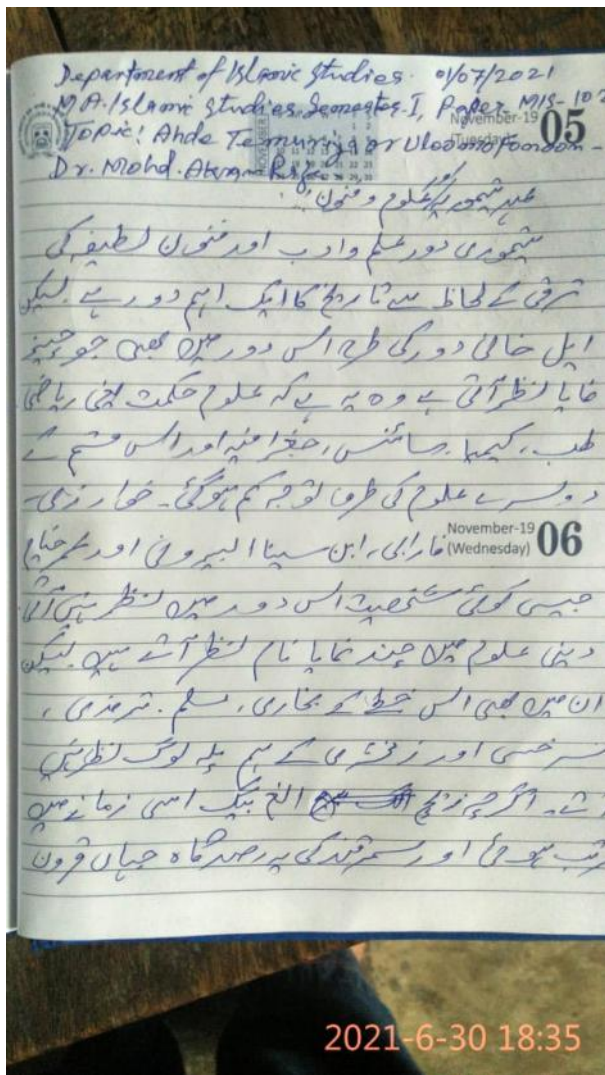 Department of Islamic Studies. 01/07/2021
M.A. Islamic Studies Semester-I, Paper MIS-102
November-19
(Tuesday) 05
Topic: Ahde Temuriya or Uloomofonoon -
Dr. Mohd. Akram
عہد تیموریہ اور علوم و فنون
تیموری دور علم و ادب اور فنون لطیفہ کی
ترقی کے لحاظ سے تاریخ کا ایک اہم دور ہے لیکن
ایل خانی دور کی طرح اس دور میں بھی جو چیز
نمایا نظر آتی ہے وہ یہ ہے کہ علوم حکمت یعنی ریاضی
طب، کیمیا، سائنس، جغرافیہ اور اس قسم کے
دوسرے علوم کی طرف توجہ کم ہوگئی۔ خوارزمی۔
November-19
(Wednesday) 06
فارابی، ابن سینا البیرونی اور عمر خیام
جیسی کوئی شخصیت اس دور میں نظر نہیں آتی
دینی علوم میں چند نمایا نام نظر آتے ہیں لیکن
ان میں بھی اس خطے کے بخاری، مسلم، ترمذی،
سرخسی اور زمخشری کے ہم پلہ لوگ نظر نہیں
آتے۔ اگرچہ زیچ الغ بیگ اسی زمانے میں
مرتب ہوئی اور سمرقند کی یہ رصدگاہ جہاں قرون
2021-6-30 18:35